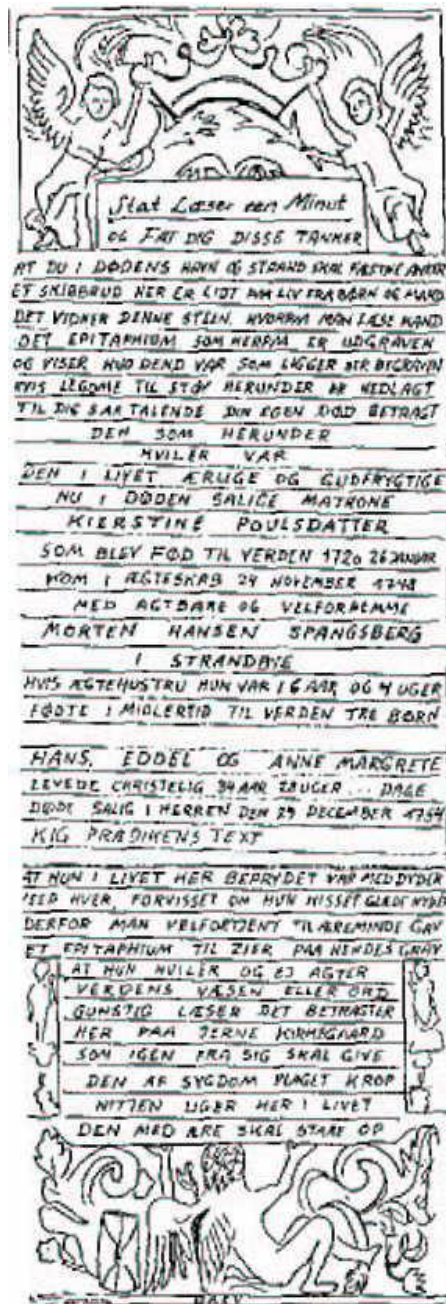 Stat Læser een Minut
OG FAT DIG DISSE TANKER
AT DU I DØDENS HAVN OG STRAND SKAL FÆSTNE ANKER
ET SKIBBRUD HER ER LIDT AF LIV FRA BØRN OG MAND
DET VIDNER DENNE STEEN. HVORPAA MAN LÆSE KAND
DET EPITAPHIUM SOM HERPAA ER UDGRAVEN
OG VISER HVO DEND VAR SOM LIGGER HER BEGRAVEN
HVIS LEGOME TIL STØV HERUNDER ER NEDLAGT
TIL DIG SAA TALENDE DIN EGEN DØD BETRAGT
DEN SOM HERUNDER
HVILER VAR
DEN I LIVET ÆRLIGE OG GUDFRYGTIGE
NU I DØDEN SALIGE MATRONE
KIERSTINE POULSDATTER
SOM BLEV FØD TIL VERDEN 1720 26 JANUAR
KOM I ÆGTESKAB 29 NOVEMBER 1748
MED AGTBARE OG VELFORNEMME
MORTEN HANSEN SPANGSBERG
I STRANDBYE
HVIS ÆGTEHUSTRU HUN VAR I 6 AAR OG 4 UGER
FØDTE I MIDLERTID TIL VERDEN TRE BØRN
HANS, EDDEL OG ANNE MARGRETE
LEVEDE CHRISTELIG 34 AAR 28 UGER .. DAGE
DØDE SALIG I HERREN DEN 29 DECEMBER 1754
KIG PRÆDIKENS TEXT
AT HUN I LIVET HER BEPRYDET VAR MED DYDER
VEED HVER, FORVISSET OM HUN HISSET GLÆDE NYDER
DERFOR MAN VELFORTJENT TIL ÆREMINDE GAV
ET EPITAPHIUM TIL ZIER PAA HENDES GRAV
AT HUN HVILER OG EJ AGTER
VERDENS VÆSEN ELLER ORD
GUNSTIG LÆSER DET BETRAGTER
HER PAA JERNE KIRKEGAARD
SOM IGEN FRA SIG SKAL GIVE
DEN AF SYGDOM PLAGET KROP
NITTEN UGER HER I LIVET
DEN MED ÆRE SKAL STAAE OP